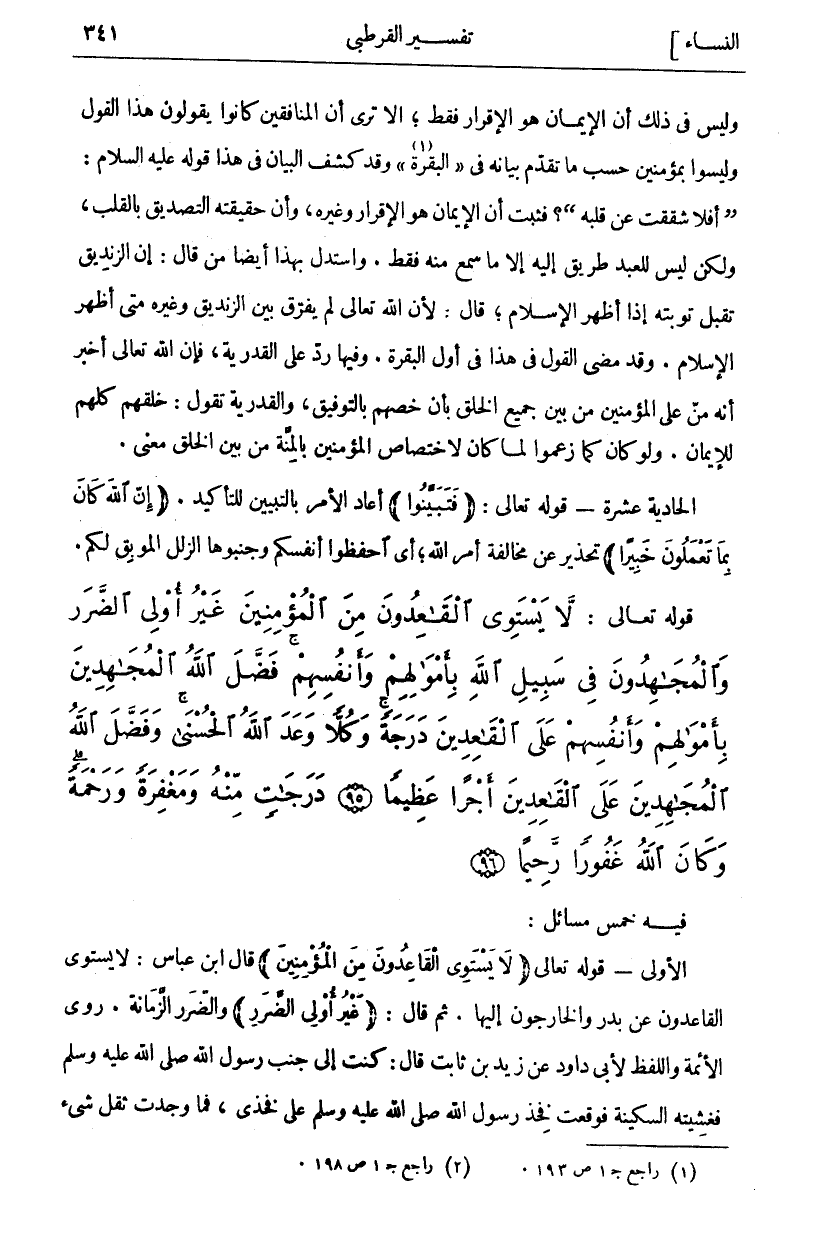 النساء ] تفسير القرطبى ٣٤١
وليس فى ذلك أن الإيمان هو الإقرار فقط ؛ ألا ترى أن المنافقين كانوا يقولون هذا القول
وليسوا بمؤمنين حسب ما تقدّم بيانه فى « البقرة (١) » وقد كشف البيان فى هذا قوله عليه السلام :
” أفلا شققت عن قلبه “ ؟ فثبت أن الإيمان هو الإقرار وغيره، وأن حقيقته التصديق بالقلب ،
ولكن ليس للعبد طريق إليه إلا ما سمع منه فقط . واستدل بهذا أيضا من قال : إن الزنديق
تقبل توبته إذا أظهر الإسلام ؛ قال : لأن الله تعالى لم يفرّق بين الزنديق وغيره متى أظهر
الإسلام . وقد مضى القول فى هذا فى أول البقرة . وفيها ردّ على القدرية ، فإن الله تعالى أخبر
أنه منّ على المؤمنين من بين جميع الخلق بأن خصهم بالتوفيق، والقدرية تقول : خلقهم كلهم
للإيمان . ولو كان كما زعموا لما كان لاختصاص المؤمنين بالمِنّة من بين الخلق معنى .
الحادية عشرة — قوله تعالى : ﴿ فَتَبَيَّنُوا ﴾ أعاد الأمر بالتبيين للتأكيد . ﴿ إِنَّ اللَّهَ كَانَ
بِمَا تَعْمَلُونَ خَبِيرًا ﴾ تحذير عن مخالفة أمر الله ؛ أى احفظوا أنفسكم وجنبوها الزلل الموبق لكم.
قوله تعالى : لَّا يَسْتَوِى ٱلْقَـٰعِدُونَ مِنَ ٱلْمُؤْمِنِينَ غَيْرُ أُوْلِى ٱلضَّرَرِ
وَٱلْمُجَـٰهِدُونَ فِى سَبِيلِ ٱللَّهِ بِأَمْوَٰلِهِمْ وَأَنفُسِهِمْ ۚ فَضَّلَ ٱللَّهُ ٱلْمُجَـٰهِدِينَ
بِأَمْوَٰلِهِمْ وَأَنفُسِهِمْ عَلَى ٱلْقَـٰعِدِينَ دَرَجَةً ۚ وَكُلًّا وَعَدَ ٱللَّهُ ٱلْحُسْنَىٰ ۚ وَفَضَّلَ ٱللَّهُ
ٱلْمُجَـٰهِدِينَ عَلَى ٱلْقَـٰعِدِينَ أَجْرًا عَظِيمًا ﴿٩٥﴾ دَرَجَـٰتٍ مِّنْهُ وَمَغْفِرَةً وَرَحْمَةً ۚ
وَكَانَ ٱللَّهُ غَفُورًا رَّحِيمًا ﴿٩٦﴾
فيه خمس مسائل :
الأولى — قوله تعالى ﴿ لَا يَسْتَوِى الْقَاعِدُونَ مِنَ الْمُؤْمِنِينَ ﴾ قال ابن عباس : لا يستوى
القاعدون عن بدر والخارجون إليها . ثم قال : ﴿ غَيْرُ أُولِى الضَّرَرِ ﴾ والضّرر الزَّمانة . روى
الأئمة واللفظ لأبى داود عن زيد بن ثابت قال : كنت إلى جنب رسول الله صلى الله عليه وسلم
فغشيته السكينة فوقعت فخِذ رسول الله صلى الله عليه وسلم على فخذى ، فما وجدت ثقل شىء
(١) راجع جـ ١ ص ١٩٣ . (٢) راجع جـ ١ ص ١٩٨ .